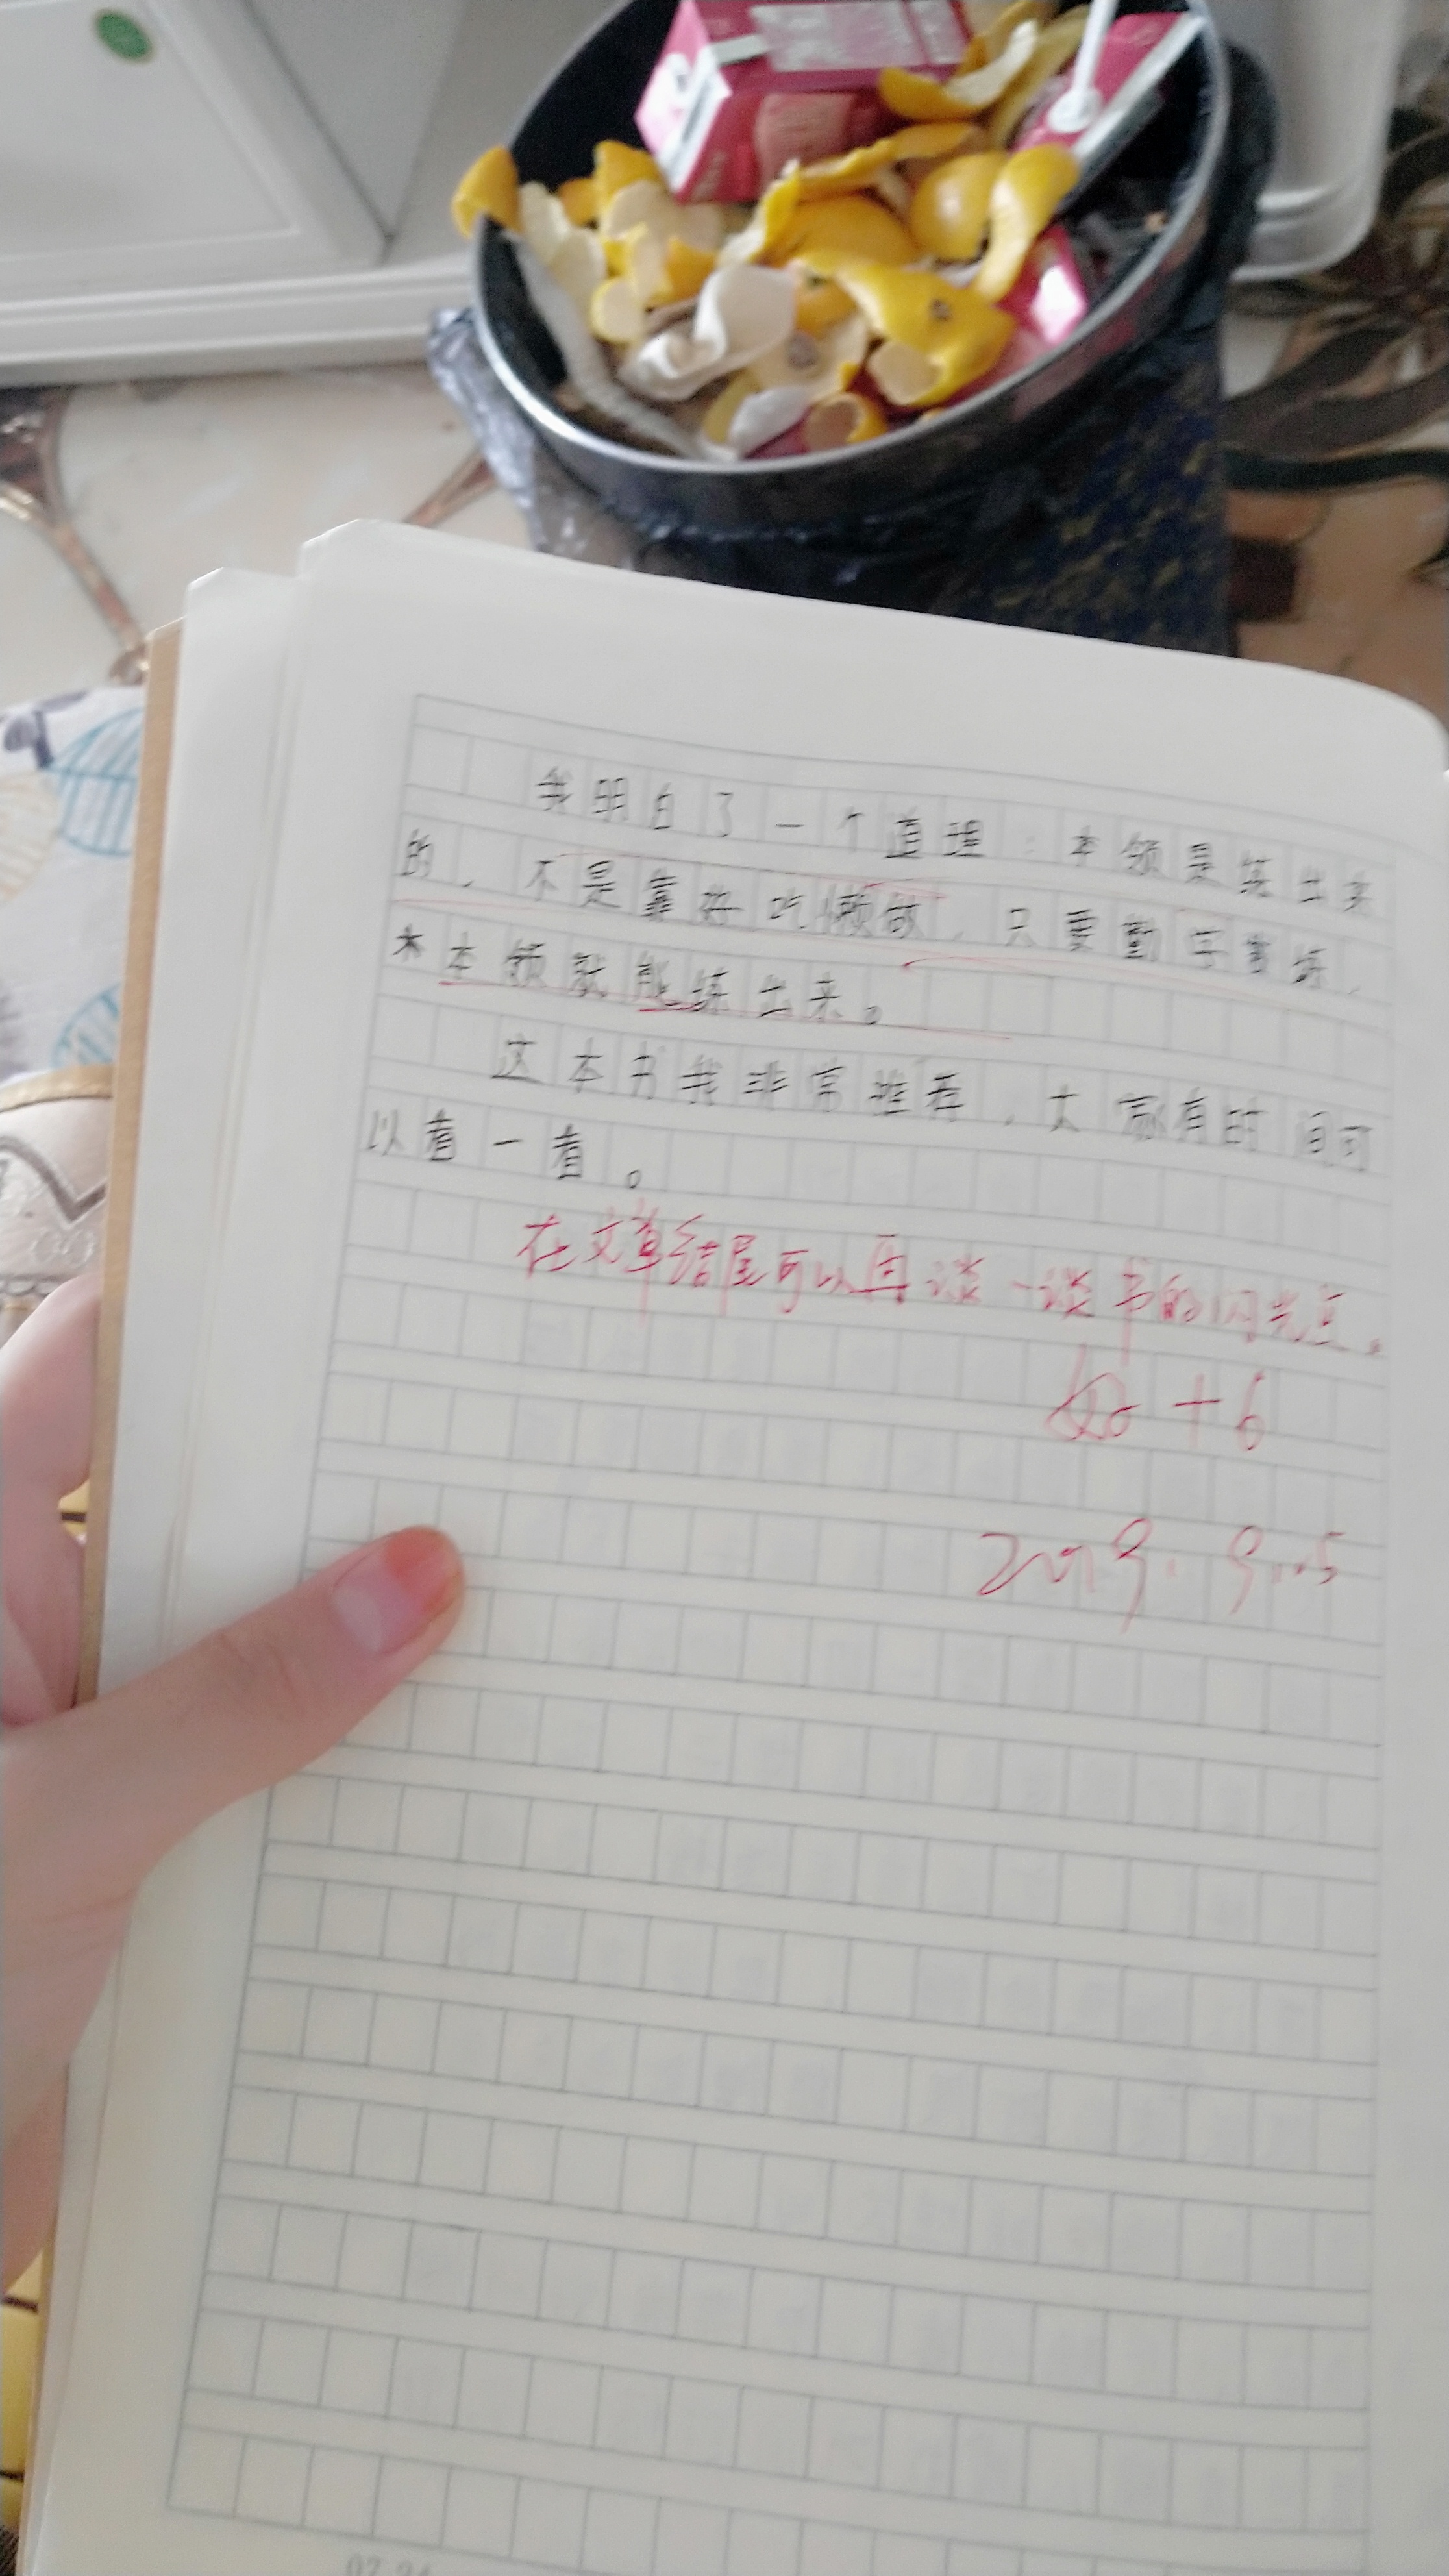 我明白了一个道理：本领是练出来
的，不是靠好吃懒做，只要勤学苦练，
本领就能练出来。
这本书我非常推荐，大家有时间可
以看一看。
在文章结尾可以再谈一谈书的闪光点。
好 +6
2019. 9.